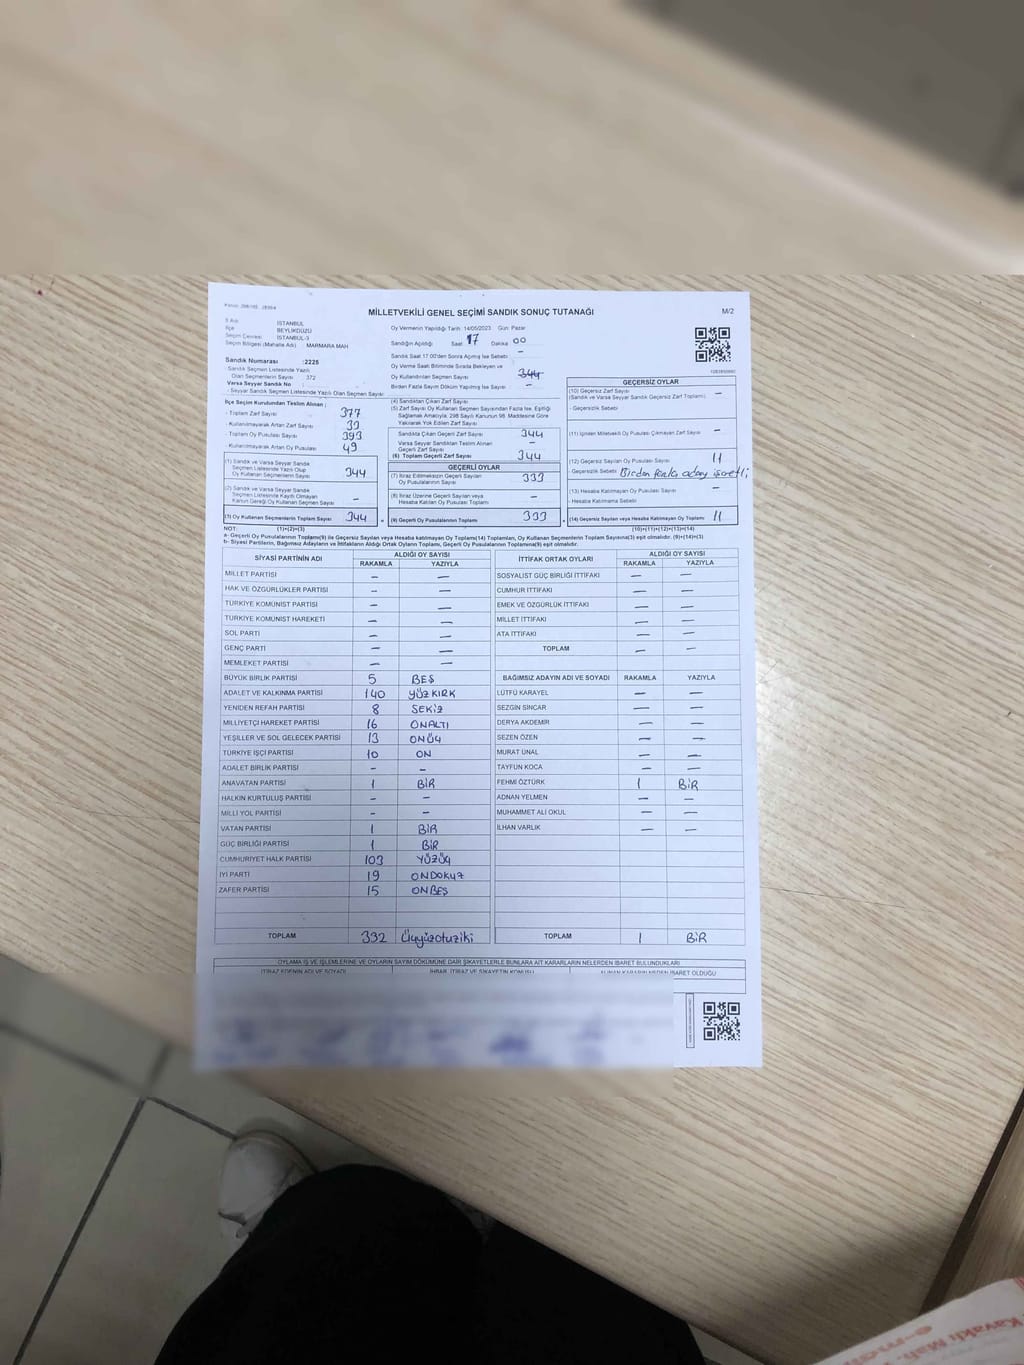 MİLLETVEKİLİ GENEL SEÇİMİ SANDIK SONUÇ TUTANAĞI
M/2
İl Adı İSTANBUL
İlçe BEYLİKDÜZÜ
Seçim Çevresi İSTANBUL-3
Seçim Bölgesi (Mahalle Adı) MARMARA MAH
Oy Vermenin Yapıldığı Tarih 14/05/2023 Gün: Pazar
Sandığın Açıldığı Saat 17 Dakika 00
Sandık Saat 17:00'den Sonra Açılmış İse Sebebi –
Oy Verme Saati Bitiminde Sırada Bekleyen ve
Oy Kullandırılan Seçmen Sayısı 344
Birden Fazla Sayım Döküm Yapılmış İse Sayısı –
Sandık Numarası :2225
Sandık Seçmen Listesinde Yazılı
Olan Seçmenlerin Sayısı 372
Varsa Seyyar Sandık No :
- Seyyar Sandık Seçmen Listesinde Yazılı Olan Seçmen Sayısı
İlçe Seçim Kurulundan Teslim Alınan :
- Toplam Zarf Sayısı 377
- Kullanılmayarak Artan Zarf Sayısı 33
- Toplam Oy Pusulası Sayısı 393
- Kullanılmayarak Artan Oy Pusulası 49
(1) Sandık ve Varsa Seyyar Sandık
Seçmen Listesinde Yazılı Olup
Oy Kullanan Seçmenlerin Sayısı 344
(2) Sandık ve Varsa Seyyar Sandık
Seçmen Listesinde Kayıtlı Olmayan
Kanun Gereği Oy Kullanan Seçmen Sayısı –
(3) Oy Kullanan Seçmenlerin Toplam Sayısı 344
(1)+(2)=(3)
(4) Sandıktan Çıkan Zarf Sayısı
(5) Zarf Sayısı Oy Kullanan Seçmen Sayısından Fazla İse, Eşitliği
Sağlamak Amacıyla, 298 Sayılı Kanunun 98. Maddesine Göre
Yakılarak Yok Edilen Zarf Sayısı
Sandıkta Çıkan Geçerli Zarf Sayısı 344
Varsa Seyyar Sandıktan Teslim Alınan
Geçerli Zarf Sayısı –
(6) Toplam Geçerli Zarf Sayısı 344
GEÇERLİ OYLAR
(7) İtiraz Edilmeksizin Geçerli Sayılan
Oy Pusulalarının Sayısı 333
(8) İtiraz Üzerine Geçerli Sayılan veya
Hesaba Katılan Oy Pusulası Toplamı –
(9) Geçerli Oy Pusulalarının Toplamı 333
GEÇERSİZ OYLAR
(10) Geçersiz Zarf Sayısı
(Sandık ve Varsa Seyyar Sandık Geçersiz Zarf Toplamı) –
- Geçersizlik Sebebi
(11) İçinden Milletvekili Oy Pusulası Çıkmayan Zarf Sayısı –
(12) Geçersiz Sayılan Oy Pusulası Sayısı 11
- Geçersizlik Sebebi Birden fazla aday işaretli
(13) Hesaba Katılmayan Oy Pusulası Sayısı –
- Hesaba Katılmama Sebebi
(14) Geçersiz Sayılan veya Hesaba Katılmayan Oy Toplamı 11
(10)+(11)+(12)+(13)=(14)
NOT:
a- Geçerli Oy Pusulalarının Toplamı(9) ile Geçersiz Sayılan veya Hesaba katılmayan Oy Toplamı(14) Toplamları, Oy Kullanan Seçmenlerin Toplam Sayısına(3) eşit olmalıdır. (9)+(14)=(3)
b- Siyasi Partilerin, Bağımsız Adayların ve İttifakların Aldığı Ortak Oyların Toplamı, Geçerli Oy Pusulalarının Toplamına(9) eşit olmalıdır.
SİYASİ PARTİNİN ADI ALDIĞI OY SAYISI
RAKAMLA YAZIYLA
MİLLET PARTİSİ – –
HAK VE ÖZGÜRLÜKLER PARTİSİ – –
TÜRKİYE KOMÜNİST PARTİSİ – –
TÜRKİYE KOMÜNİST HAREKETİ – –
SOL PARTİ – –
GENÇ PARTİ – –
MEMLEKET PARTİSİ – –
BÜYÜK BİRLİK PARTİSİ 5 BEŞ
ADALET VE KALKINMA PARTİSİ 140 YÜZKIRK
YENİDEN REFAH PARTİSİ 8 SEKİZ
MİLLİYETÇİ HAREKET PARTİSİ 16 ONALTI
YEŞİLLER VE SOL GELECEK PARTİSİ 13 ONÜÇ
TÜRKİYE İŞÇİ PARTİSİ 10 ON
ADALET BİRLİK PARTİSİ – –
ANAVATAN PARTİSİ 1 BİR
HALKIN KURTULUŞ PARTİSİ – –
MİLLİ YOL PARTİSİ – –
VATAN PARTİSİ 1 BİR
GÜÇ BİRLİĞİ PARTİSİ 1 BİR
CUMHURİYET HALK PARTİSİ 103 YÜZÜÇ
İYİ PARTİ 19 ONDOKUZ
ZAFER PARTİSİ 15 ONBEŞ
TOPLAM 332 Üçyüzotuziki
İTTİFAK ORTAK OYLARI ALDIĞI OY SAYISI
RAKAMLA YAZIYLA
SOSYALİST GÜÇ BİRLİĞİ İTTİFAKI – –
CUMHUR İTTİFAKI – –
EMEK VE ÖZGÜRLÜK İTTİFAKI – –
MİLLET İTTİFAKI – –
ATA İTTİFAKI – –
TOPLAM – –
BAĞIMSIZ ADAYIN ADI VE SOYADI RAKAMLA YAZIYLA
LÜTFÜ KARAYEL – –
SEZGİN SİNCAR – –
DERYA AKDEMİR – –
SEZEN ÖZEN – –
MURAT ÜNAL – –
TAYFUN KOCA – –
FEHMİ ÖZTÜRK 1 BİR
ADNAN YELMEN – –
MUHAMMET ALİ OKUL – –
İLHAN VARLIK – –
TOPLAM 1 BİR
OYLAMA İŞ VE İŞLEMLERİNE VE OYLARIN SAYIM DÖKÜMÜNE DAİR ŞİKAYETLERLE BUNLARA AİT KARARLARIN NELERDEN İBARET BULUNDUKLARI
İTİRAZ EDENİN ADI VE SOYADI
Kavaklı Mah.